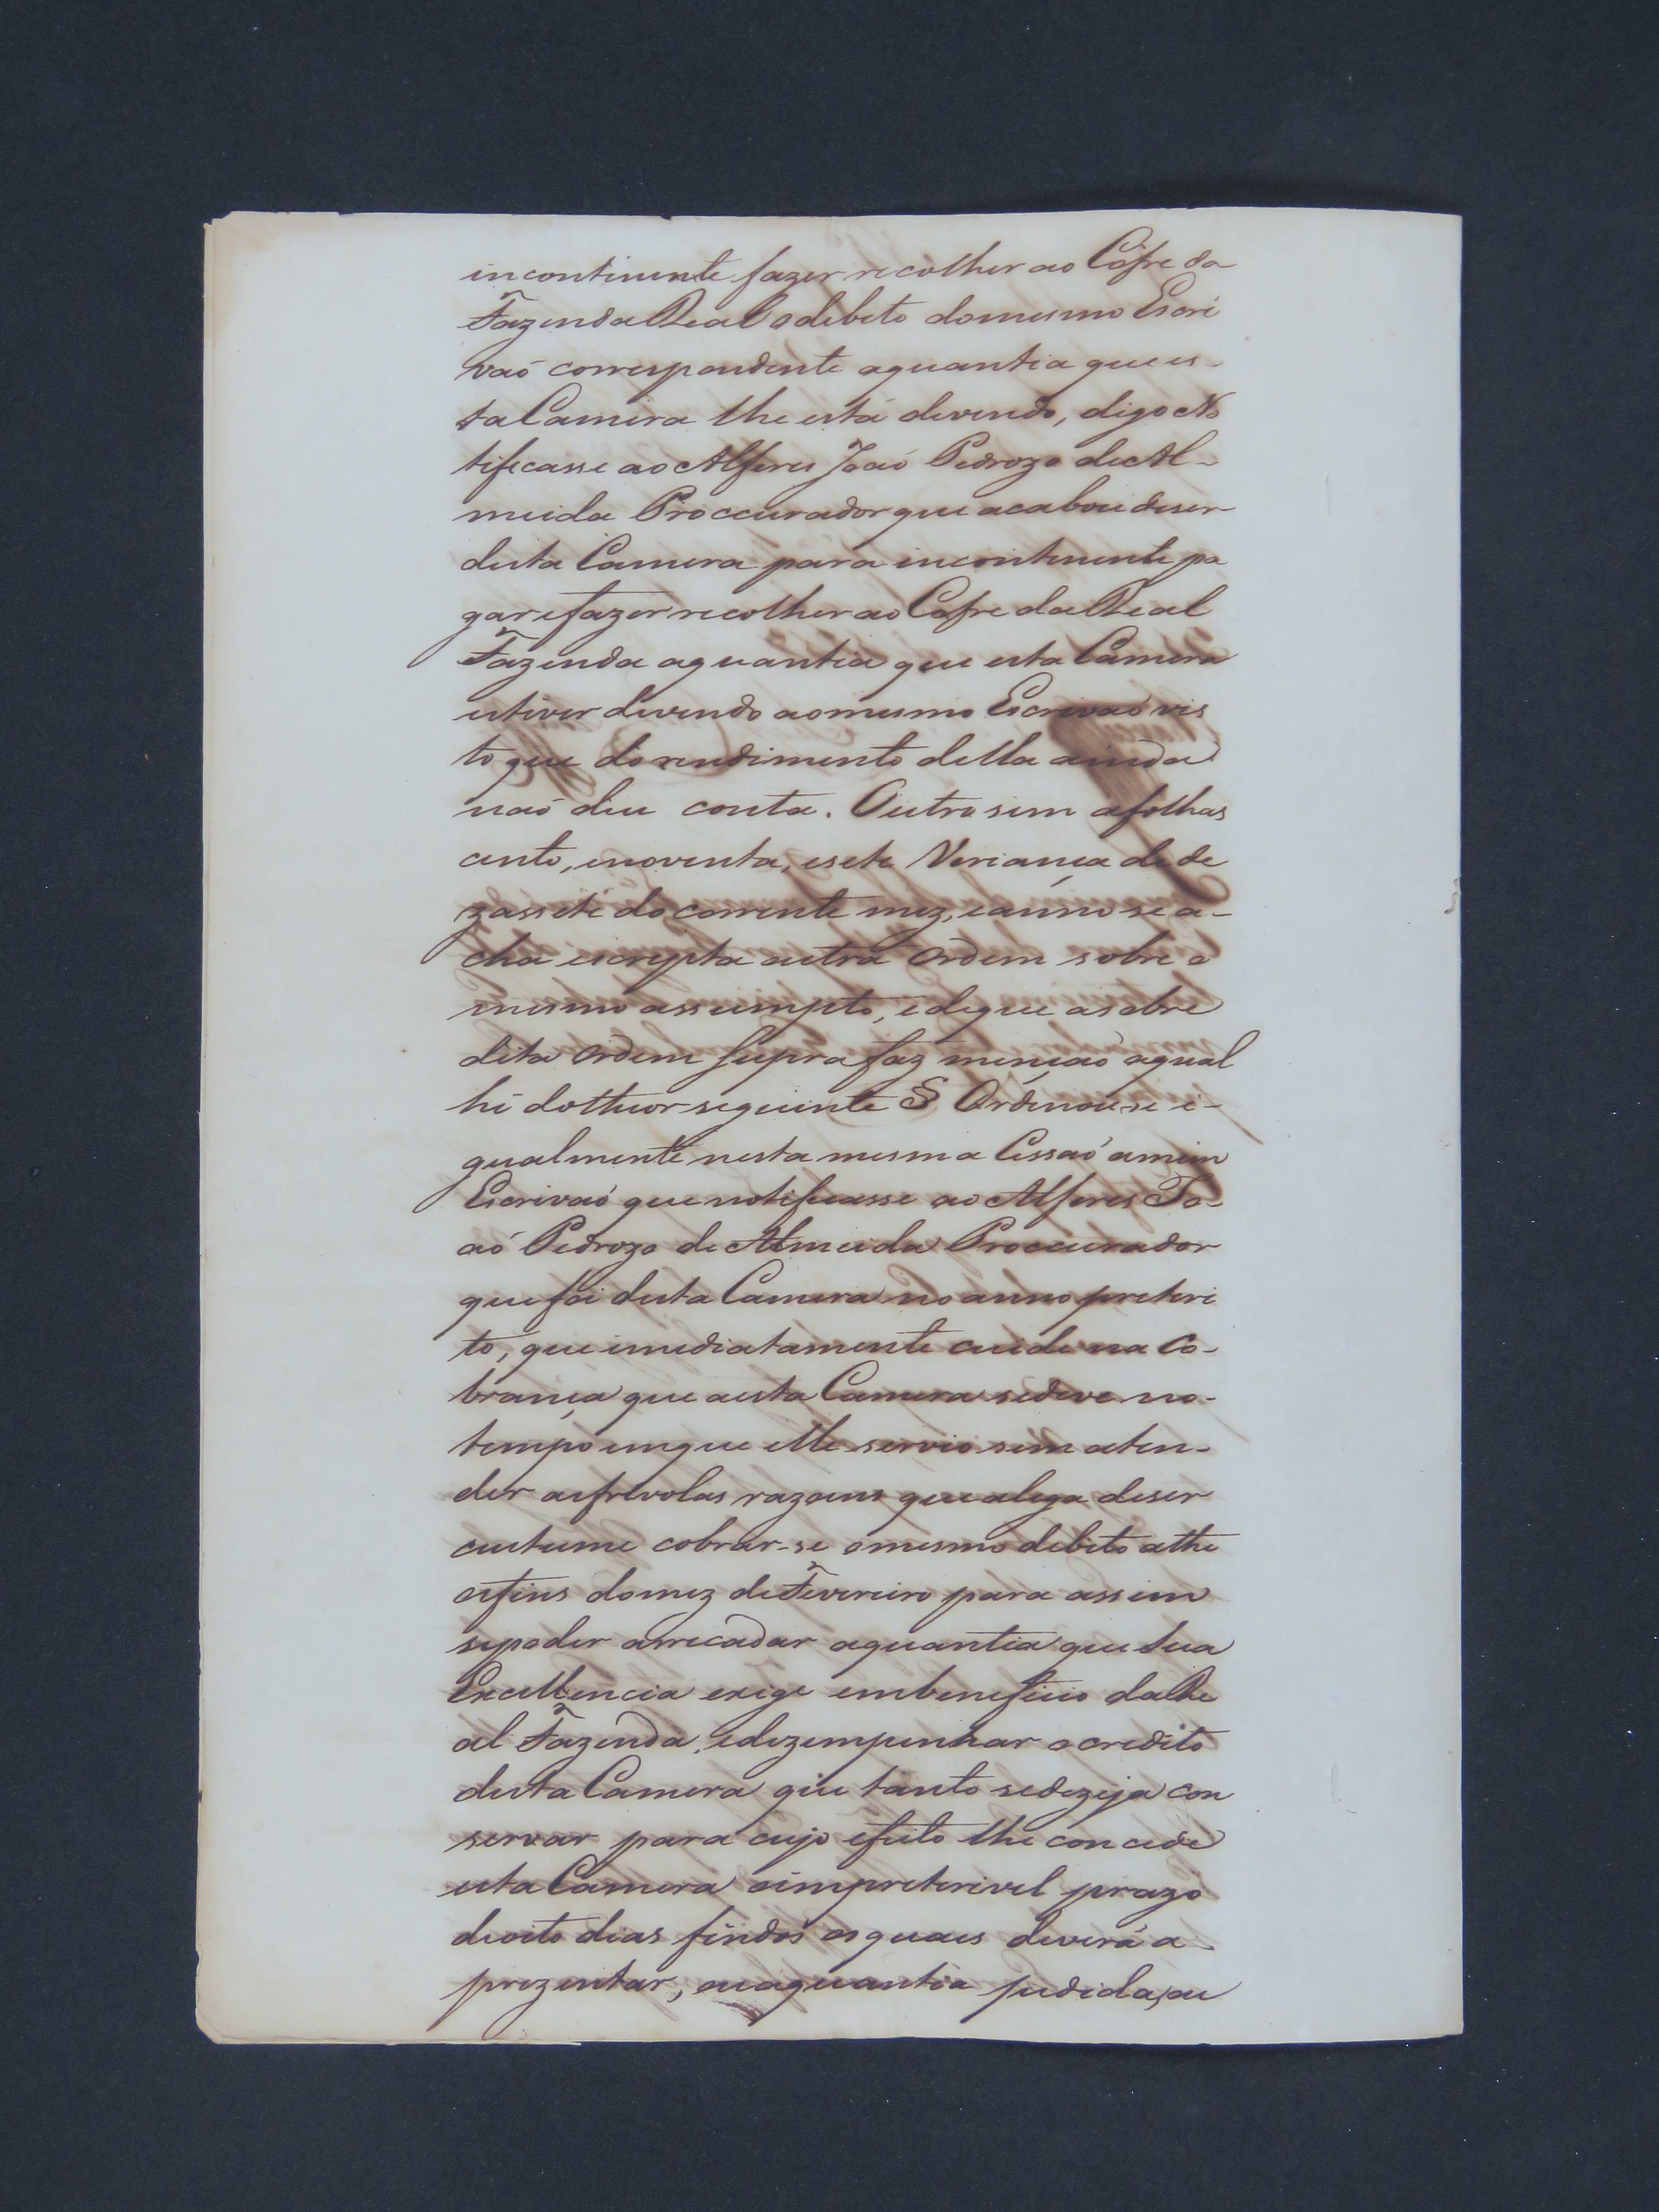 incontinente fazer recolher ao Cofre da
Fazenda Real o debito do mesmo Escri
vaõ correspondente a quantia que es-
ta Camera lhe está devendo, digo No
tificasse ao Alferes Joaõ Pedrozo de Al-
meida Proccurador que acabou de ser
desta Camera para incontinente pa
gar e fazer recolher ao Cofre da Real
Fazenda a quantia que esta Camera
estiver devendo ao mesmo Escrivaõ vis
to que do rendimento della ainda
naõ deu conta. Outro sim a folhas
cento, e noventa, e sete Veriança de de
zassete do corrente mez, e anno se a-
cha escripta outra Ordem sobre o
mesmo assumpto, e de que a sobre
dita Ordem supra faz mençaõ a qual
hé do theor seguinte § Ordenou-se i-
gualmente nesta mesma Cessaõ a mim
Escrivaõ que notificasse ao Alferes Jo-
aõ Pedrozo de Almeida Proccurador
que foi desta Camera no anno preteri
to, que imediatamente cuide na Co-
brança que a esta Camera se deve no-
tempo em que elle servio sem aten-
der as frivolas razoens que alega de ser
custume cobrar-se o mesmo debito athe
os fins do mez de Fevereiro para assim
se poder arrecadar a quantia que Sua
Excellencia exige em beneficio da Re
al Fazenda, e dezempenhar o credito
desta Camera que tanto se dezeja con
servar para cujo efeito lhe concede
esta Camera o impreterivel prazo
de oito dias findos os quaes deverá a-
prezentar, ou a quantia pedida, ou